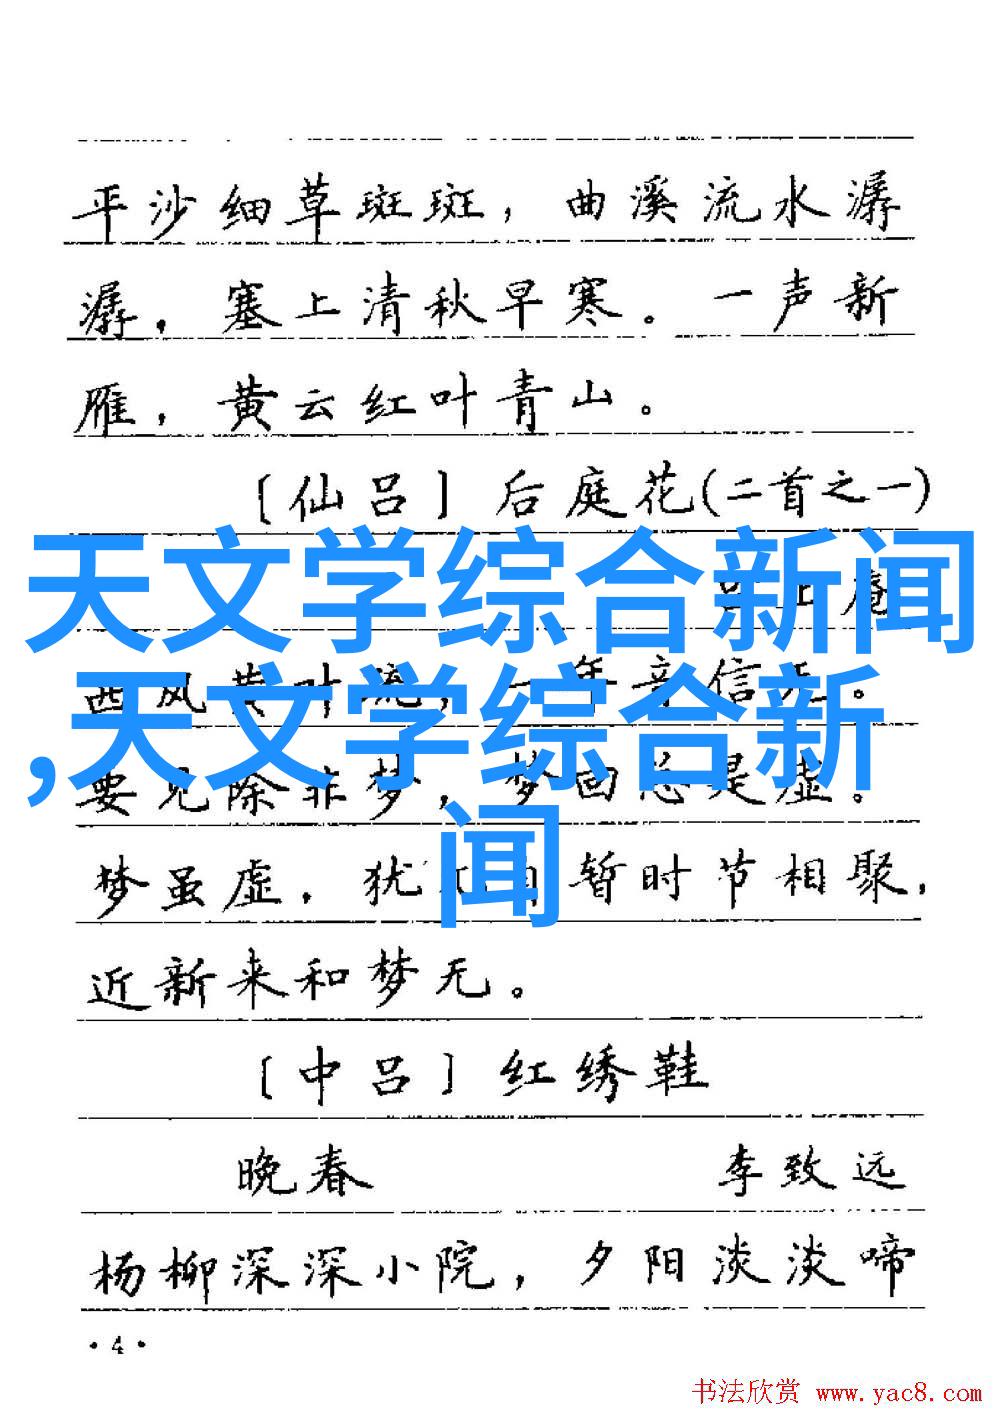 平沙细草斑斑，曲溪流水潺
潺，塞上清秋早寒。一声新
雁，黄云红叶青山。
〔仙吕〕后庭花(二首之一)
天文学综合新闻
西风黄叶疏，一年音信无。
,天文学综合新
要见除非梦，梦回总是虚。
闻
梦虽虚，犹暂时节相聚，
近新来和梦无。
〔中吕〕红绣鞋
晚春 李致远
杨柳深深小院，夕阳淡淡啼
·4·
书法欣赏 www.yac8.com